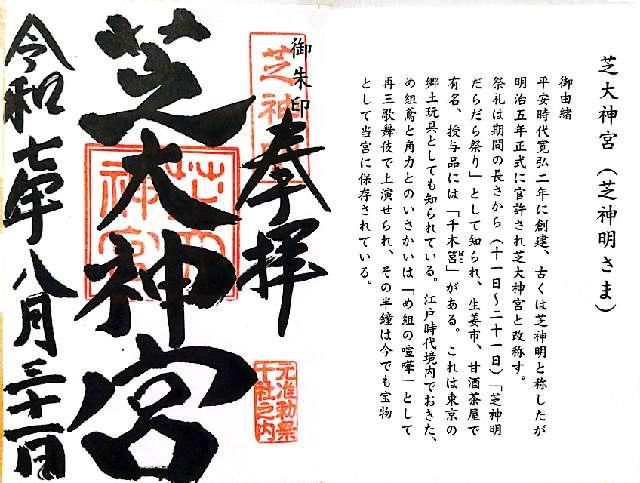 芝大神宮(芝神明さま)
御由緒
平安時代寛弘二年に創建、古くは芝神明と称したが
明治五年正式に官許され芝大神宮と改称す。
祭礼は期間の長さから(十一日〜二十一日)「芝神明
だらだら祭り」として知られ、生姜市、甘酒茶屋で
有名、授与品には「千木筥」がある。これは東京の
郷土玩具としても知られている。江戸時代境内でおきた、
め組鳶と角力とのいさかいは「め組の喧嘩」として
再三歌舞伎で上演せられ、その半鐘は今でも宝物
として当宮に保存されている。
御朱印
奉拝
芝大神宮
令和七年八月三十一日
元准勅祭
十社之内